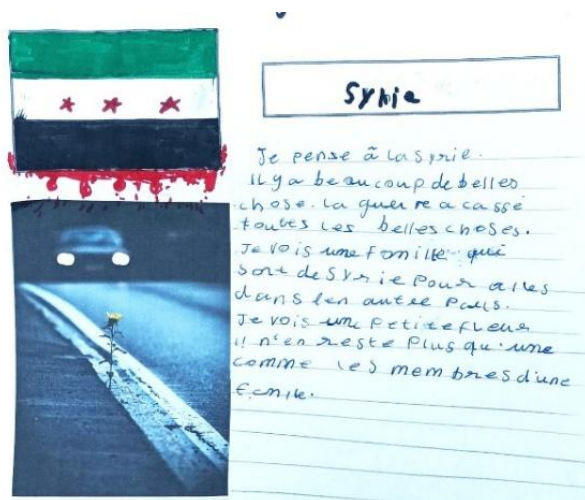 Syrie
Je pense à la Syrie.
Il y a beaucoup de belles
chose. la guerre a cassé
toutes les belles choses.
Je vois une famille qui
sort de Syrie pour aller
dans un autre pays.
Je vois une petite fleur
il n'en reste plus qu'une
comme les membres d'une
famille.